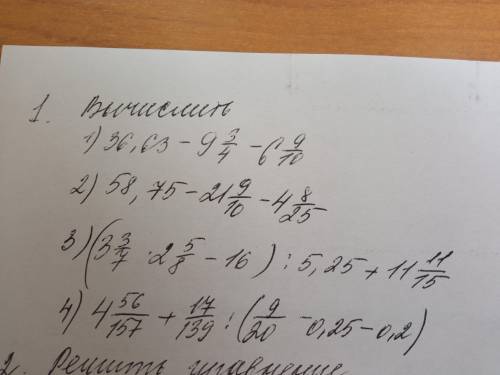 1. Вычислить
1) 36,63 - 9 3/4 - 6 9/10
2) 58,75 - 21 9/10 - 4 8/25
3) (3 3/7 · 2 5/8 - 16) : 5,25 + 11 11/15
4) 4 56/157 + 17/139 : (9/20 - 0,25 - 0,2)
2. Решить уравнение